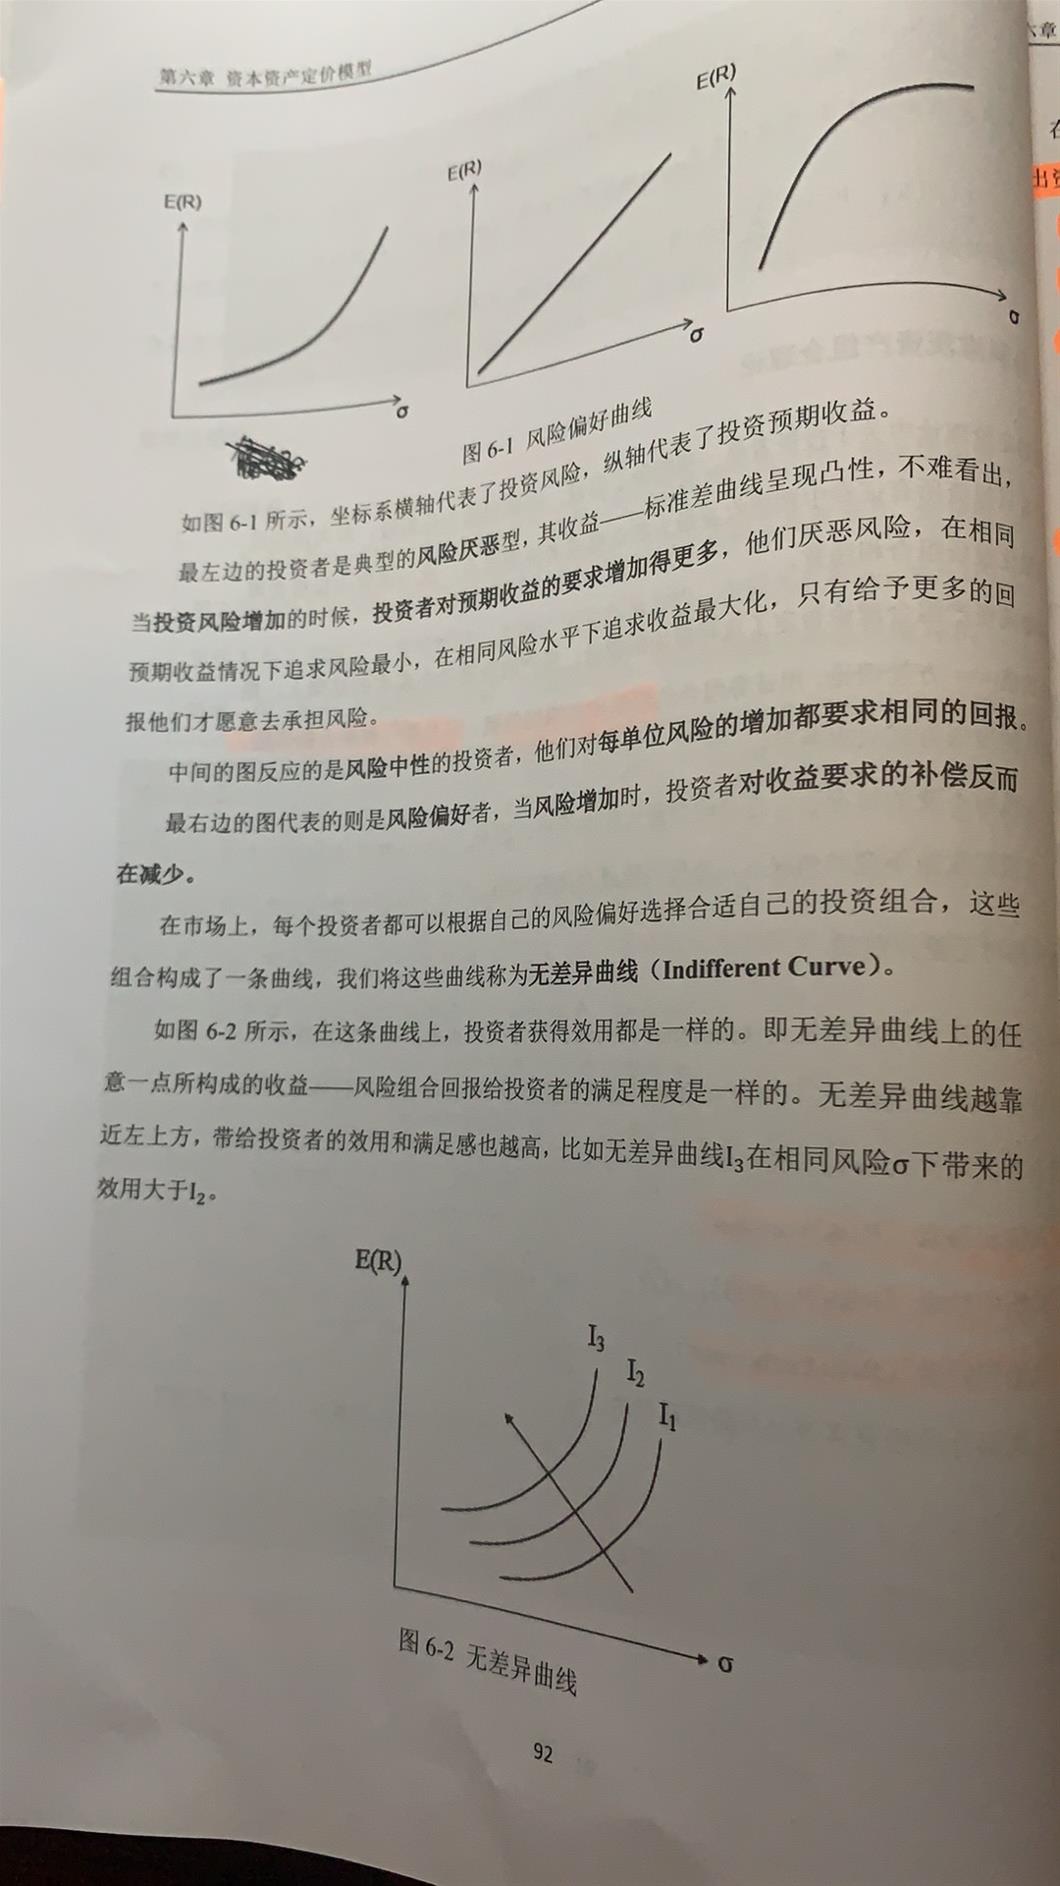 第六章 资本资产定价模型
E(R)
σ
E(R)
σ
E(R)
σ
图 6-1 风险偏好曲线
如图 6-1 所示，坐标系横轴代表了投资风险，纵轴代表了投资预期收益。
最左边的投资者是典型的风险厌恶型，其收益——标准差曲线呈现凸性，不难看出，
当投资风险增加的时候，投资者对预期收益的要求增加得更多，他们厌恶风险，在相同
预期收益情况下追求风险最小，在相同风险水平下追求收益最大化，只有给予更多的回
报他们才愿意去承担风险。
中间的图反应的是风险中性的投资者，他们对每单位风险的增加都要求相同的回报。
最右边的图代表的则是风险偏好者，当风险增加时，投资者对收益要求的补偿反而
在减少。
在市场上，每个投资者都可以根据自己的风险偏好选择合适自己的投资组合，这些
组合构成了一条曲线，我们将这些曲线称为无差异曲线（Indifferent Curve）。
如图 6-2 所示，在这条曲线上，投资者获得效用都是一样的。即无差异曲线上的任
意一点所构成的收益——风险组合回报给投资者的满足程度是一样的。无差异曲线越靠
近左上方，带给投资者的效用和满足感也越高，比如无差异曲线I₃在相同风险σ下带来的
效用大于I₂。
E(R)
I₃
I₂
I₁
σ
图 6-2 无差异曲线
92
章
在
出